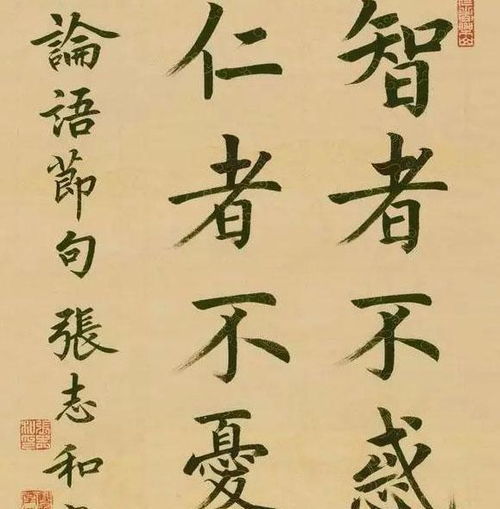 智者不惑
仁者不憂
論語節句張志和